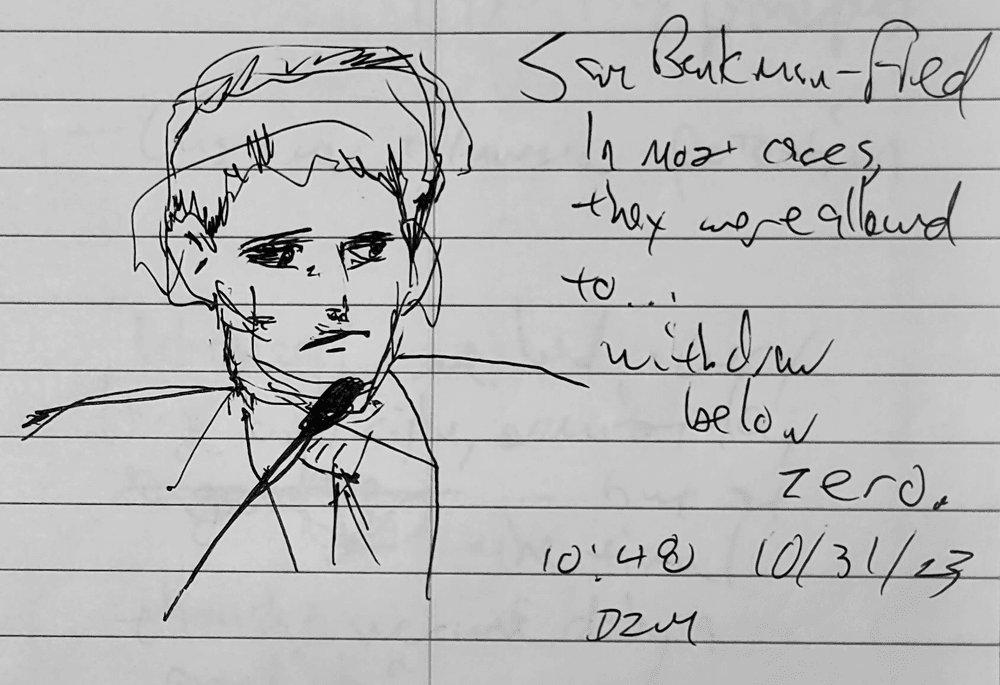 Sam Bankman-Fried
In most cases,
they were allowed
to...
withdraw
below
zero.
10:48 10/31/23
DZM